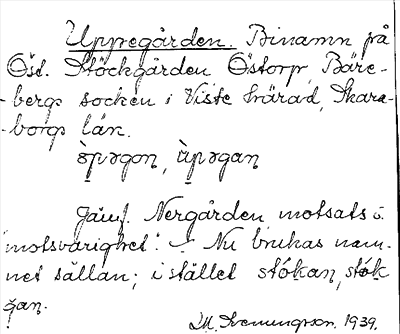 Uppegården. Binamn på
Öst. Stöckgården Östorp, Bäre-
-bergs socken i Viste härad, Skara-
-borgs län.
ò̀pəgɒn, ù̀pəgan
Jämf. Nergården motsats o.
motsvarighet. – Nu brukas nam-
net sällan; i stället stókan, stók
gan.
M. Hemingson. 1939.